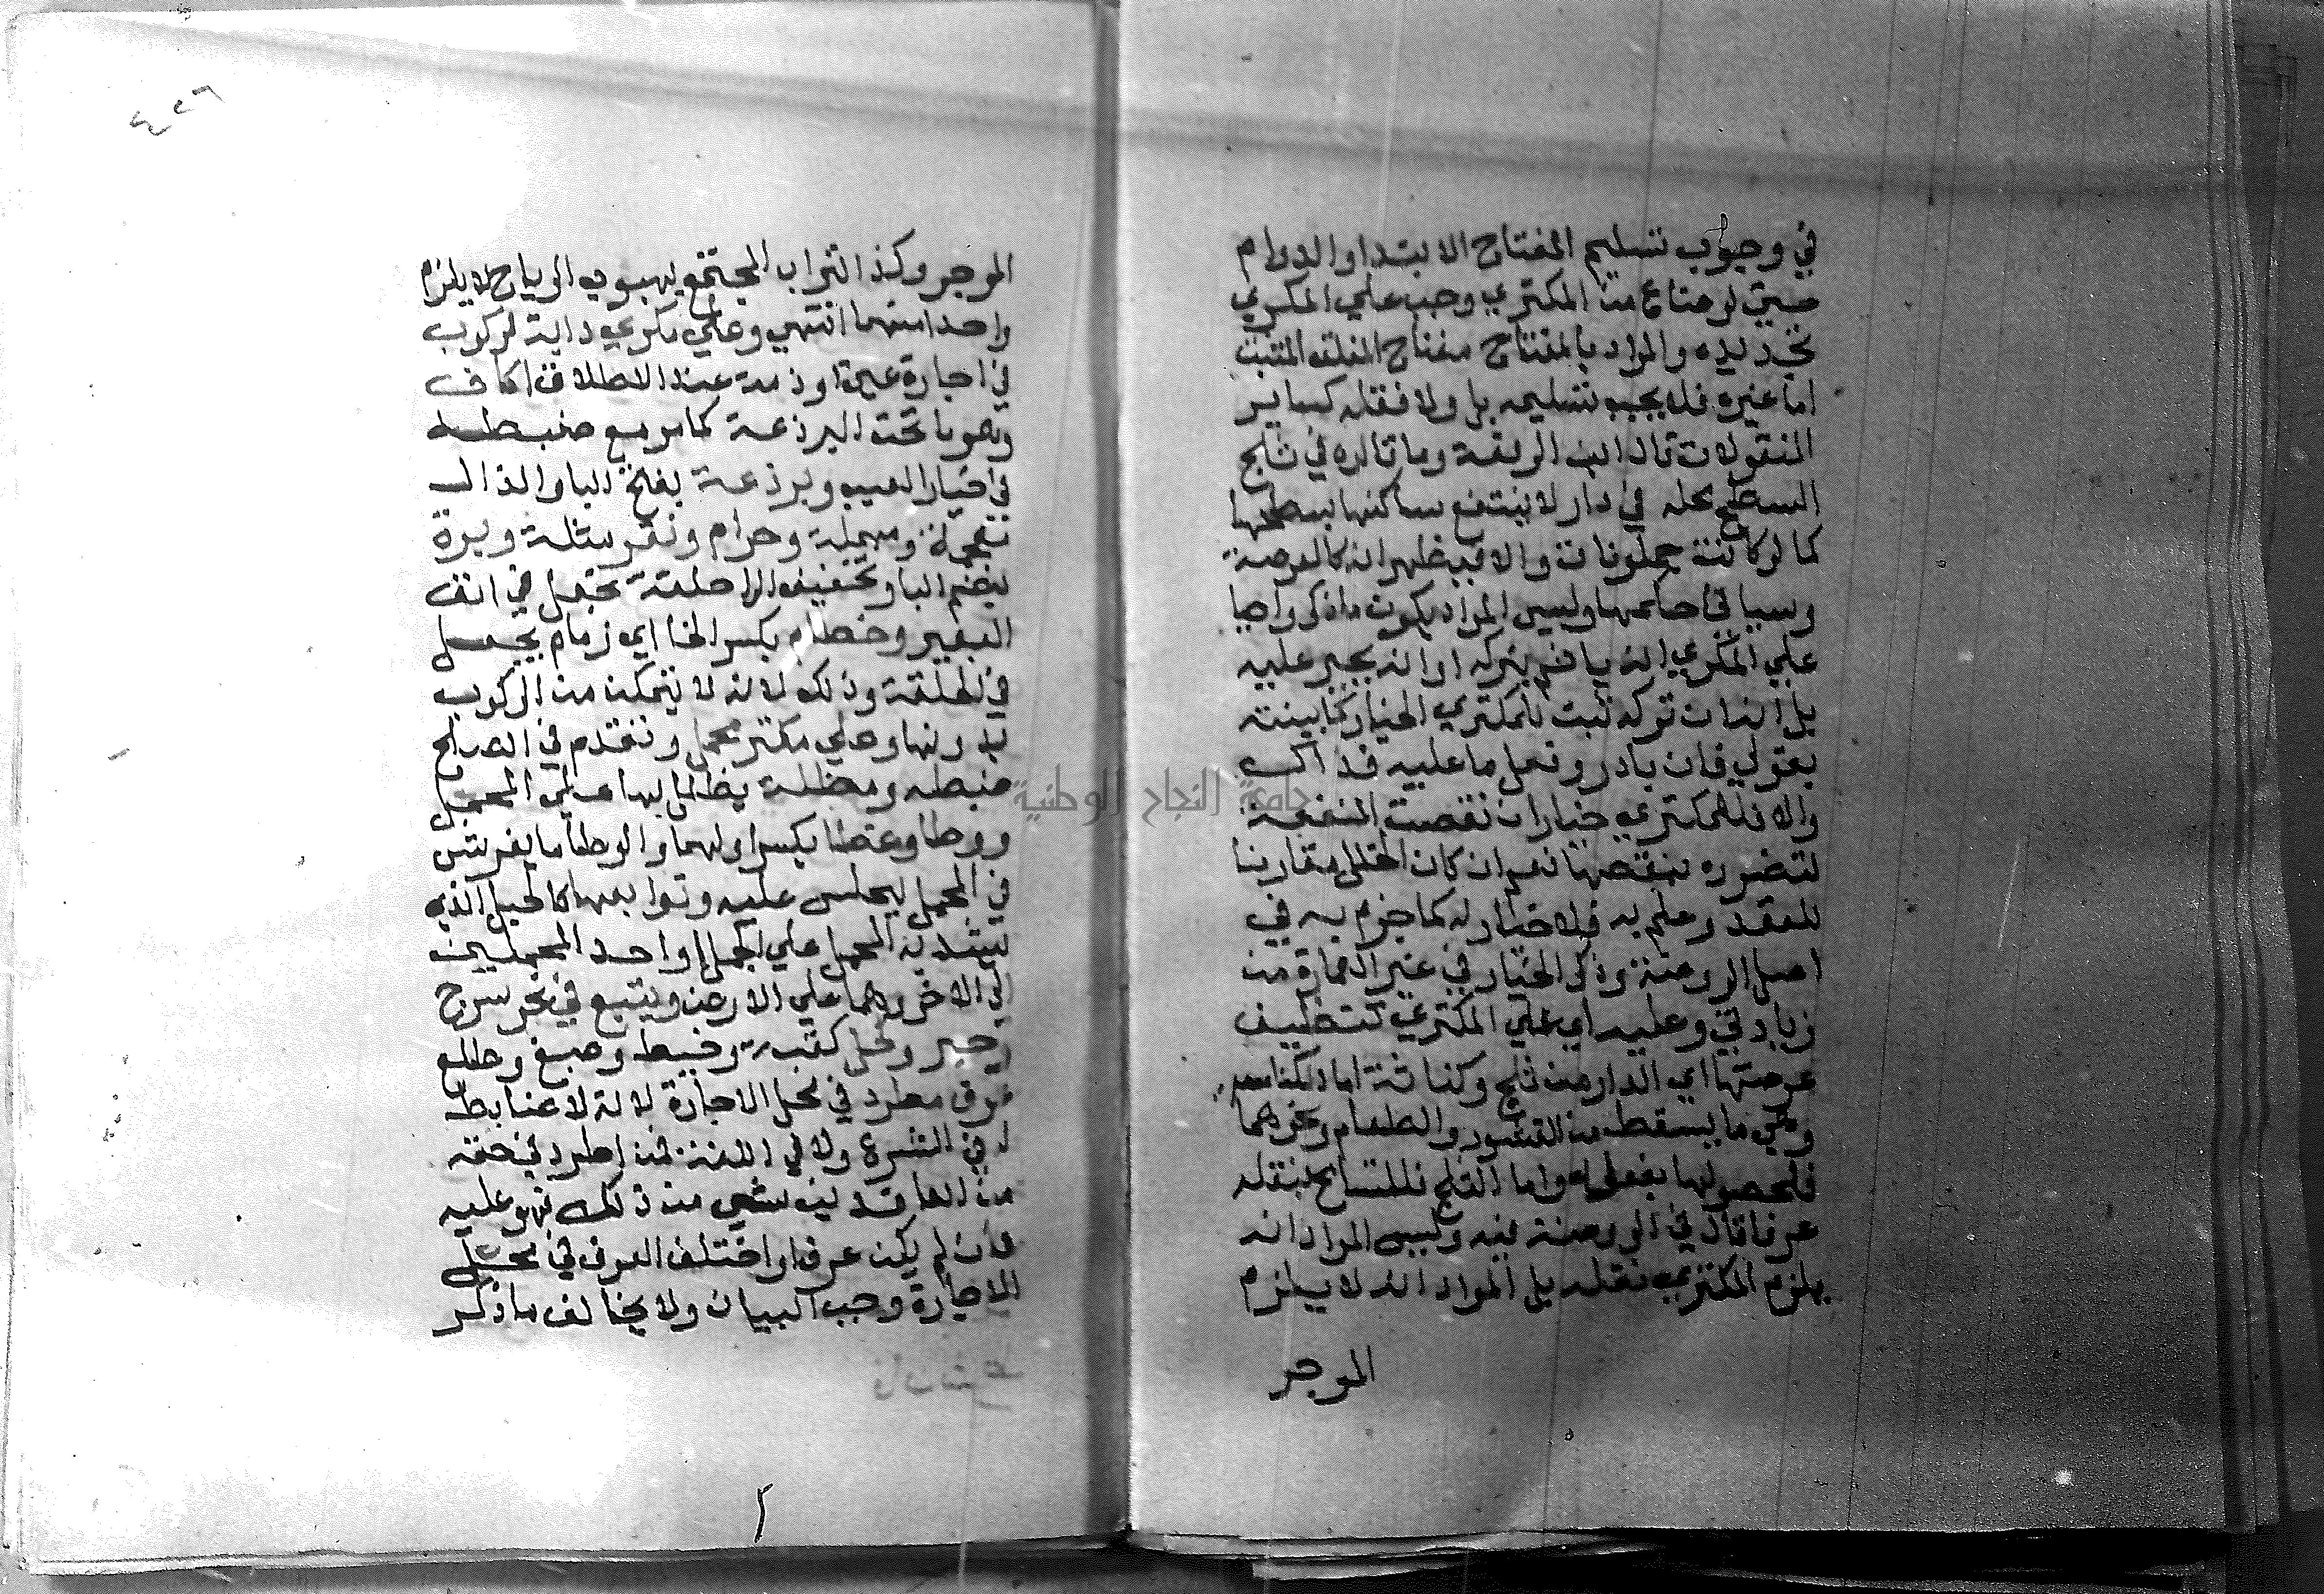 في وجوب تسليم المفتاح الابتدا والدوام
حتى لو ضاع من المكتري وجب علي المكري
تجديده والمراد بالمفتاح مفتاح الغلق المثبت
اما غيره فلا يجب تسليمه بل ولا قفله كساير
المنقولات قال ابن الرفعة وما قالوه في ثلج
السطح محله في دار لا ينتفع ساكنها بسطحها
كما لو كانت جملونات والا فيظهر انه كالعرصة
وسياتي حكمها وليس المراد بكون ما ذكر واجبا
علي المكري انه ياثم بتركه او انه يجبر عليه
بل انه ان تركه ثبت للمكتري الخيار كما بينته
بقولي فان بادر وفعل ما عليه فذاك
والا فللمكتري خيار ان نقصت المنفعة
لتضرره بنقصها نعم ان كان الخلل مقارنا
للعقد وعلم به فلا خيار له كما جزم به في
اصل الروضة وذكر الخيار في غير العمارة من
زيادتي وعليه اي علي المكتري تنظيف
عرصتها اي الدار من ثلج وكناسة اما الكناسة
وهي ما يسقط من القشور والطعام ونحوهما
فلحصولها بفعله واما الثلج فللتسامح بنقله
عرفا قال في الروضة فيه وليس المراد انه
يلزم المكتري نقله بل المراد انه لا يلزم
الموجر
٤٢٦
الموجر وكذا التراب المجتمع بهبوب الرياح لا يلزم
واحدا منهما انتهي وعلي مكري دابة لركوب
في اجارة عين او ذمة عند الاطلاق اكاف
وهو ما تحت البرذعة كما مر مع ضبطه
في خيار العيب وبرذعة بفتح البا والذال
معجمة ومهملة وحزام وثفر بمثلثة وبرة
بضم البا وتخفيف الرا حلقة تجعل في انف
البعير وخطام بكسر الخا اي زمام يجعل
في الحلقة وذلك لانه لا يتمكن من الركوب
بدونها وعلي مكتر محمل وتقدم في الصلح
ضبطه ومظلة يظلل بها علي المحمل
ووطا وغطا بكسر اولهما والوطا ما يفرش
في المحمل ليجلس عليه وتوابعها كالحبل الذي
يشد به المحمل علي الجمل او احد المحملين
الي الاخر وهما علي الارض ويتبع في نحو سرج
وحبر وكحل كقتب وخيط وصبغ وطلع
عرف مطرد في محل الاجارة لانه لا ضابط
له في الشرع ولا في اللغة فمن اطرد في حقه
من العاقدين شي من ذلك فهو عليه
فان لم يكن عرف او اختلف العرف في محل
الاجارة وجب البيان ولا يخالف ما ذكر
جامعة النجاح الوطنية